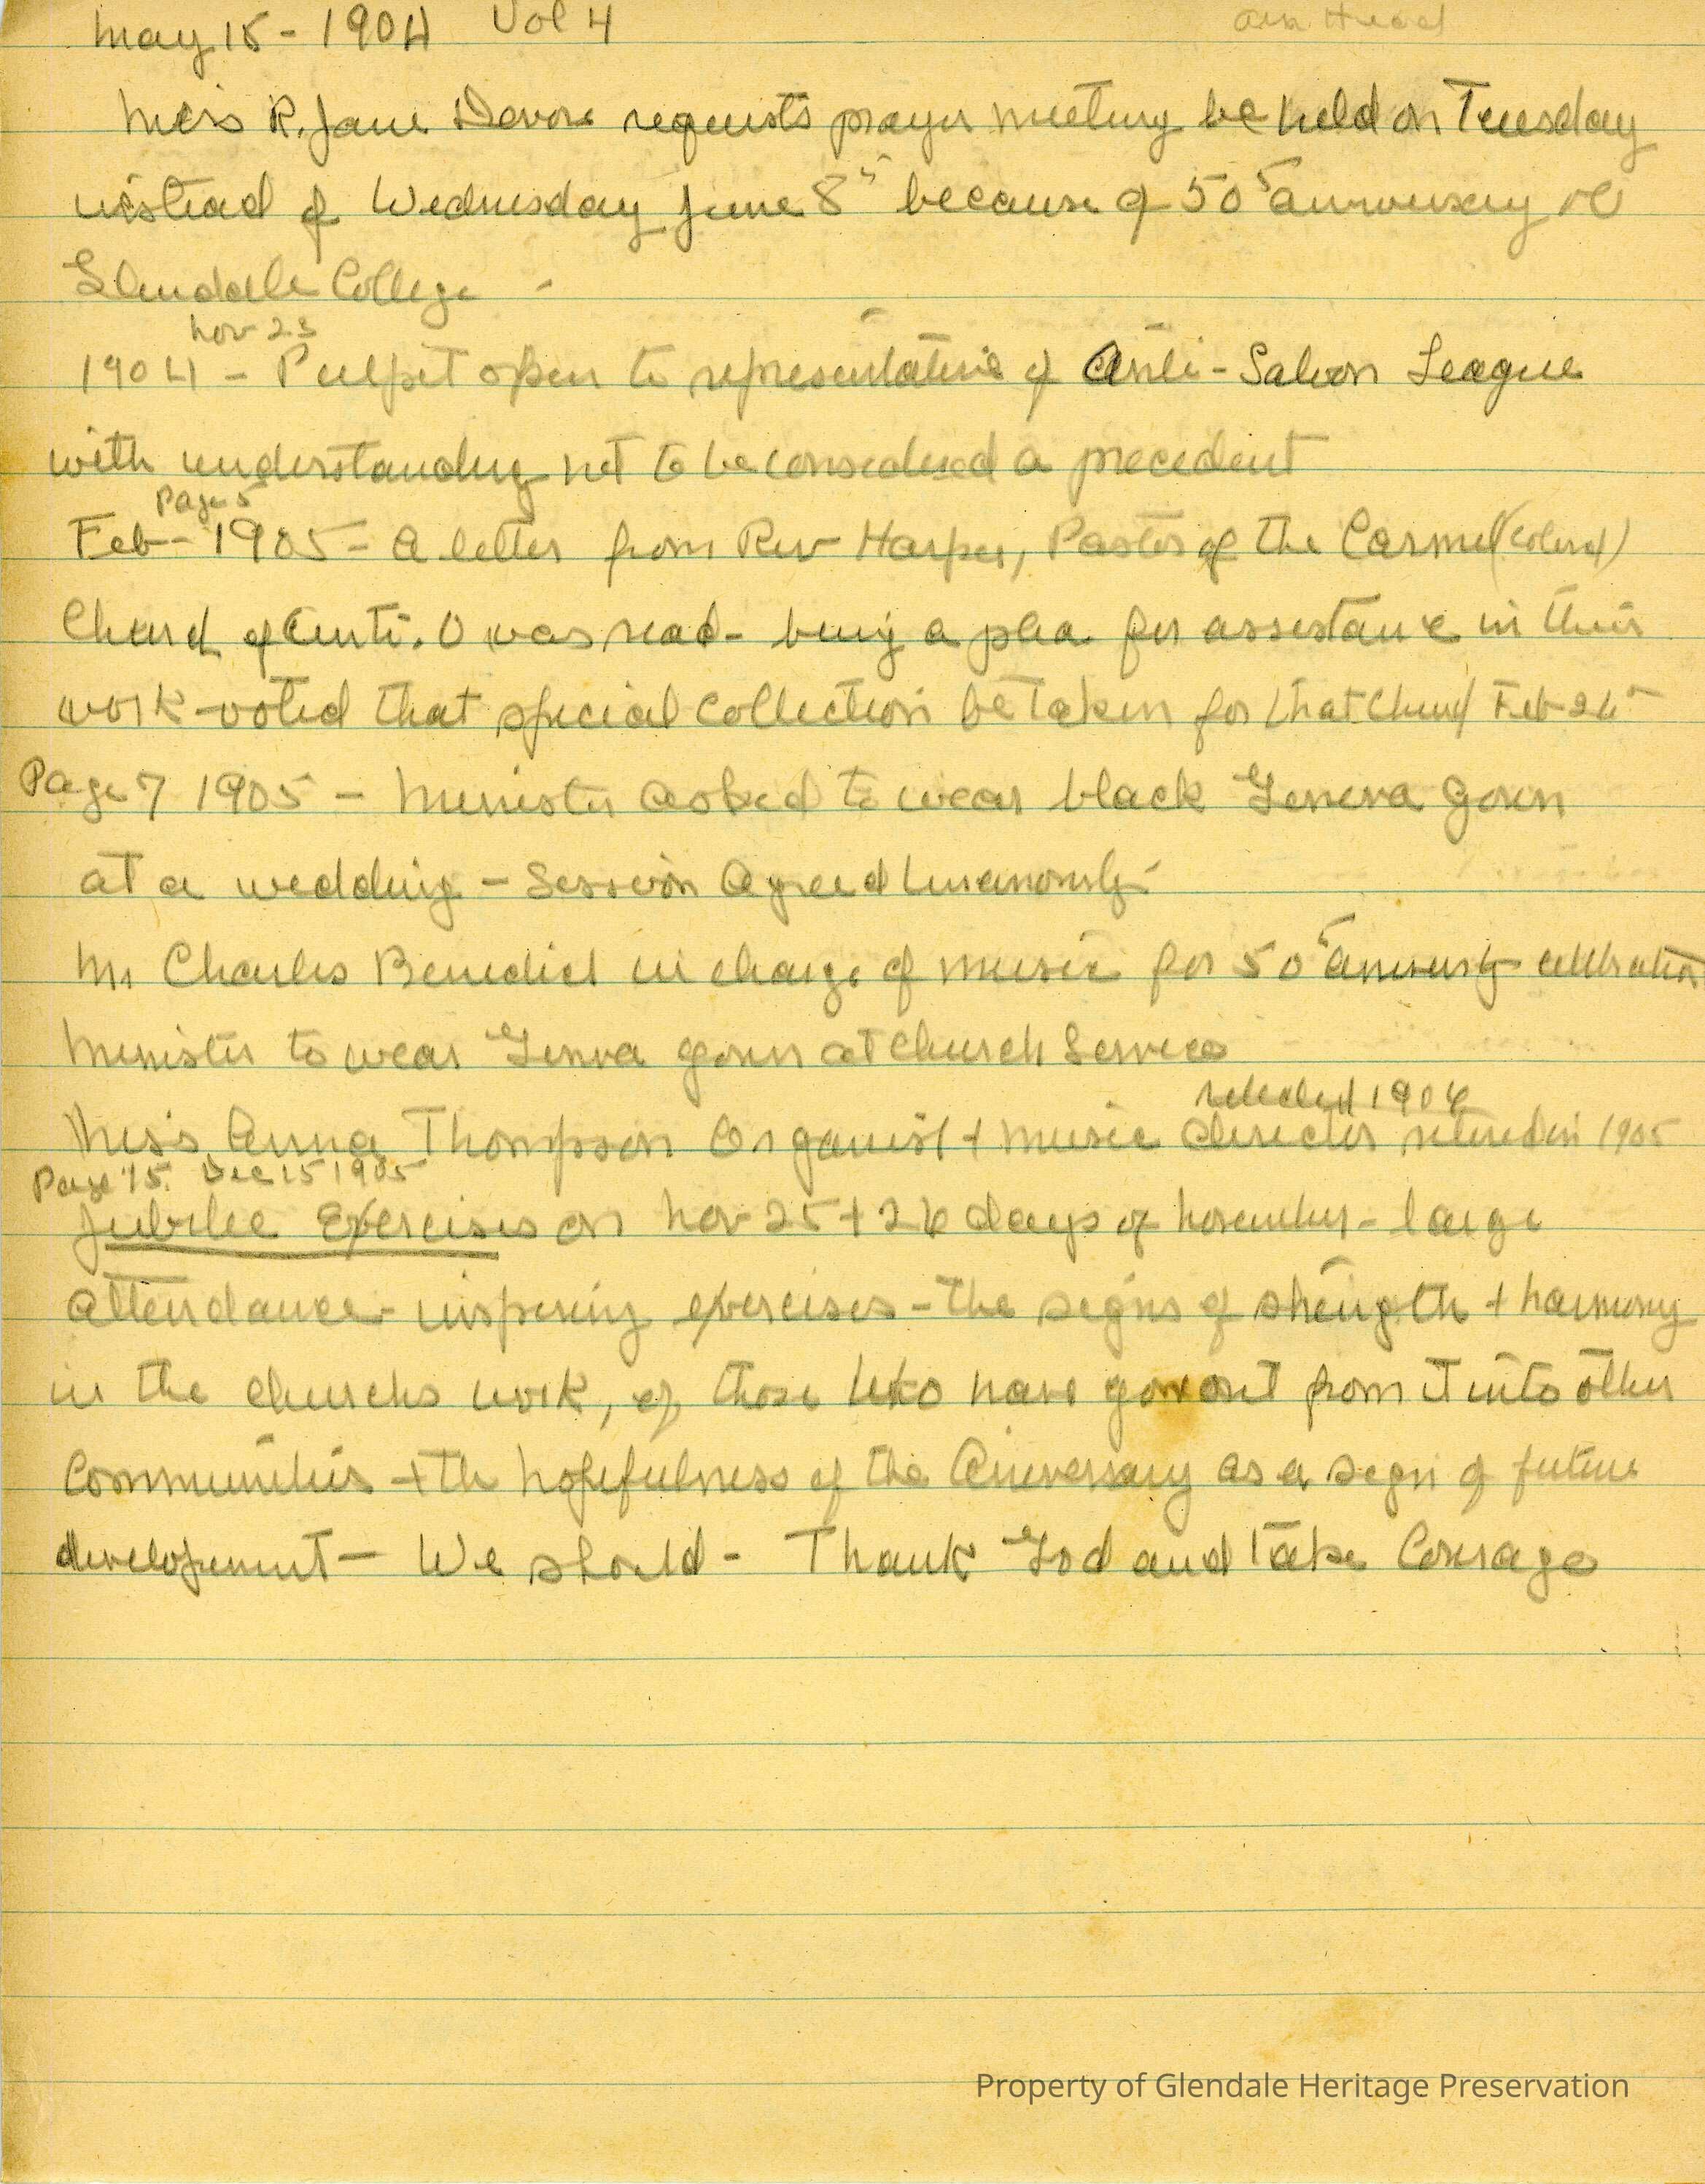 May 15 - 1904 Vol 4
Miss R. Jane Devore requests prayer meeting be held on Tuesday
instead of Wednesday June 8th because of 50th anniversary of
Glendale College -
Nov 23
1904 - Pulpit open to representative of Anti-Saloon League
with understanding not to be considered a precedent
Page 5
Feb - 1905 - A letter from Rev Harper, Pastor of the Carmel (colored)
Church of Cinti. O was read - being a plea for assistance in their
work - voted that special collection be taken for that Church Feb 26th
Page 7 1905 - Minister asked to wear black Geneva gown
at a wedding - Session Agreed Unanimously
Mr Charles Benedict in charge of music for 50th anniversary celebration
Minister to wear Geneva gown at Church Services
1906
Miss Anna Thompson Organist + music director retired in 1905
Page 15. Dec 15 1905
Jubilee Exercises on Nov 25 + 26 days of November - large
attendance - inspiring exercises - the signs of strength + harmony
in the churchs work, of those who have gone out from it into other
Communities + the hopefulness of the Aniversary as a sign of future
development - We should - Thank God and Take Courage
Property of Glendale Heritage Preservation